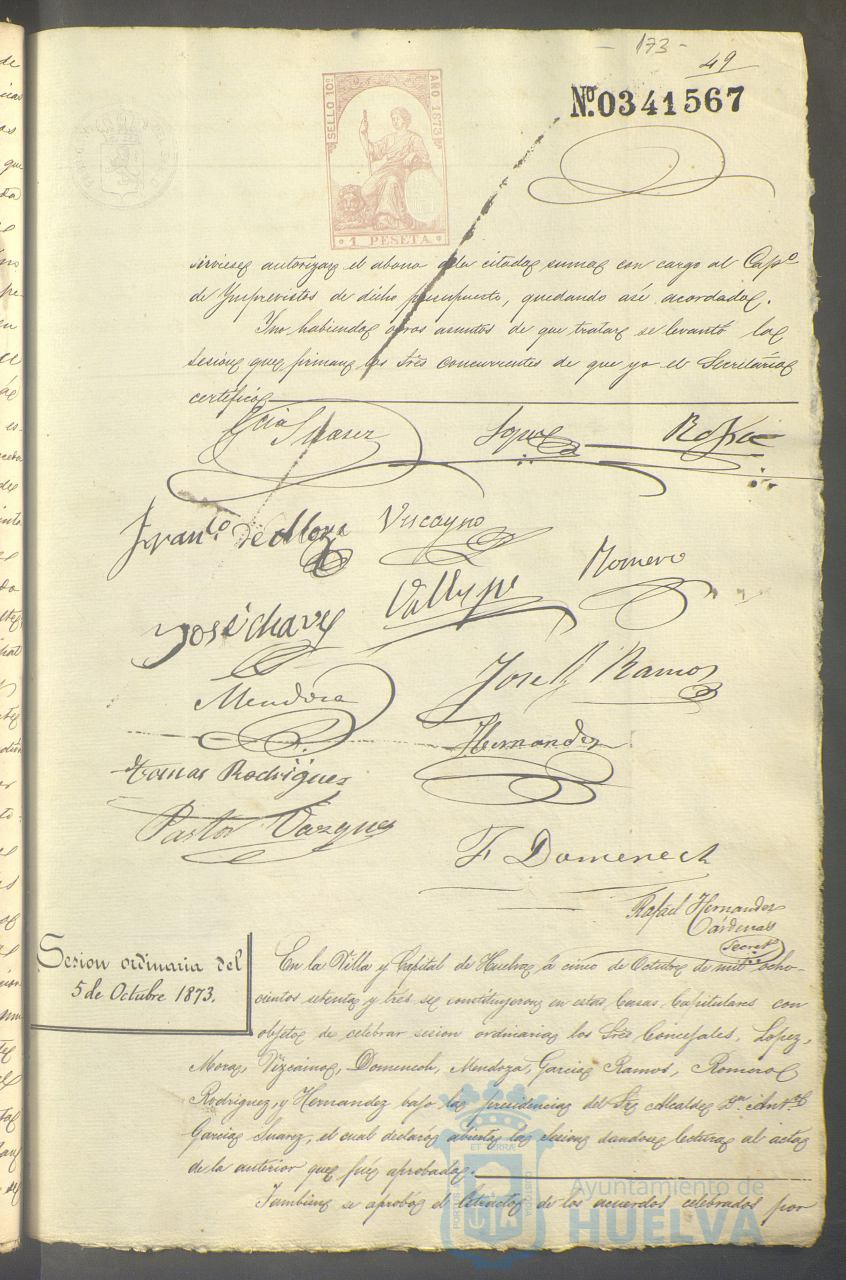 - 173 -
49
Nº 0341567
SELLO 10º
AÑO 1873
1 PESETA
sirviese autorizar el abono de la citada suma con cargo al Capº
de Imprevistos de dicho presupuesto, quedando asi acordado.
Y no habiendo otros asuntos de que tratar se levantó la
sesion que firman los Sres concurrentes de que yo el Secretario
certifico
Gcia Suarez
Lopez
Franco. de Mora
Vizcayno
Romero
José Chavez
José G Ramos
Mendoza
Hernandez
Tomas Rodriguez
Pastor Vazquez
F Domenech
Rafael Hernandez
Cárdenas
Secret
Sesion ordinaria del
5 de Octubre 1873.
En la Villa y Capital de Huelva á cinco de Octubre de mil ocho-
cientos setenta y tres se constituyeron en estas Casas Capitulares con
objeto de celebrar sesion ordinaria los Sres Concejales, Lopez,
Mora, Vizcaino, Domenech, Mendoza, Garcia Ramos, Romero
Rodriguez, y Hernandez bajo la presidencia del Sr Alcalde Dn. Antº
Garcia Suarez, el cual declaró abierta la Sesion dandose lectura al acta
de la anterior que fué aprobada.
Tambien se aprobó el Extracto de los acuerdos celebrados por
Ayuntamiento de
HUELVA